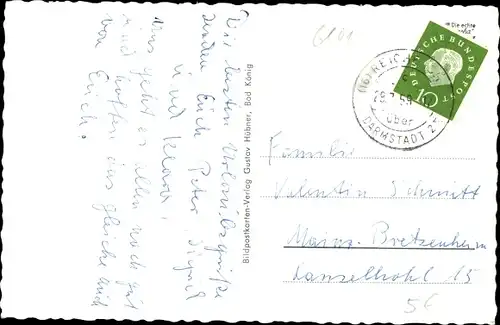 Die besten Urlaubsgrüße
senden Euch Peter, Sigrid
und Klaus.
Uns geht es allen noch gut
und hoffen das gleiche auch
von Euch.
Bildpostkarten-Verlag Gustav Hübner, Bad König
6101
Die echte
DEUTSCHE BUNDESPOST
10
(16) REICH
59
über
DARMSTADT 2
Familie
Valentin Schmitt
Mainz-Bretzenheim
Lanzelhohl 15
56